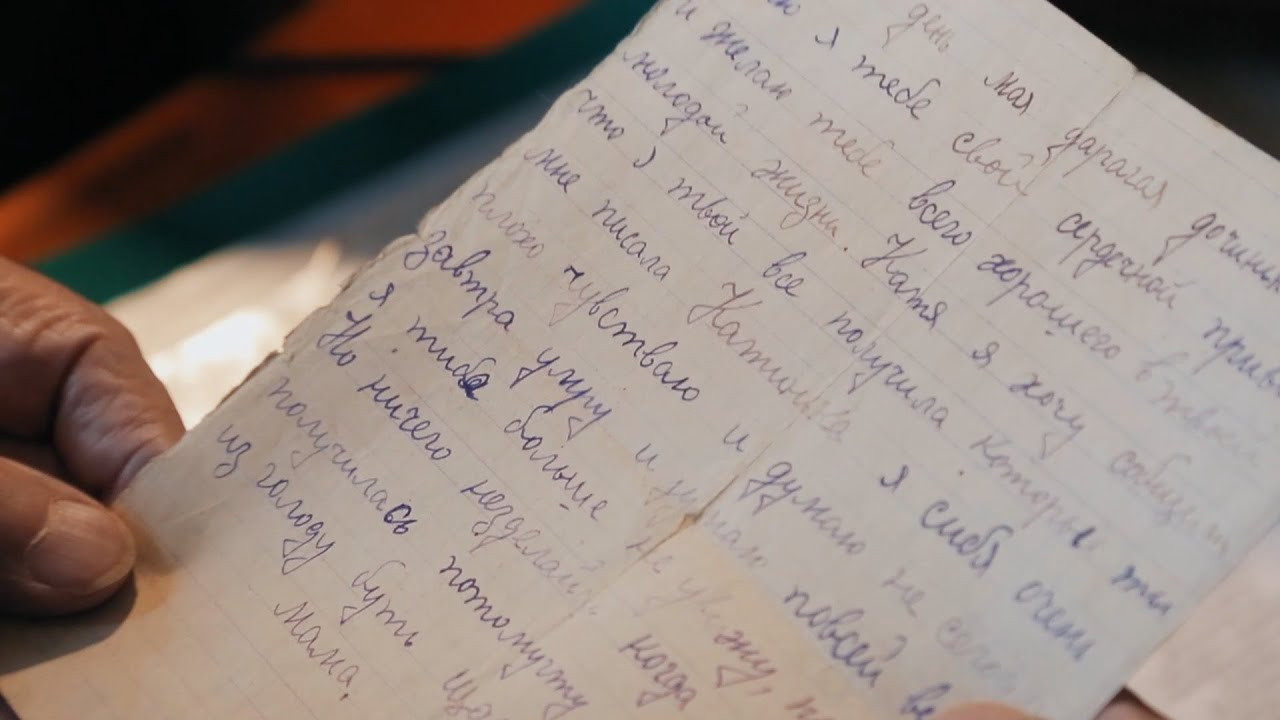 день мая дарагая дочинк
ю я тебе свой сердечной приве
и желаю тебе всего хорошего в твоей
молодой жизни. Катя я хочу собщит
что я твой все получила которы ты
мне писала Катюшка я сибя очень
плохо чувстваю и думаю не сегод
завтра умру и думаю повсей ве
я тибе больше не увижу, по
Но ничего незделаиш когда
получилась потомучто
из голоду буть ща
мама.